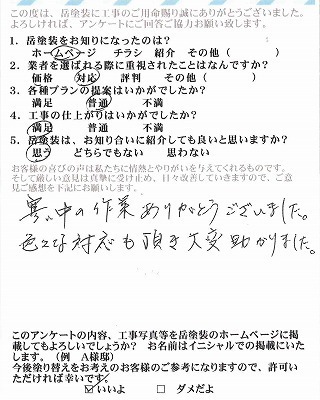 この度は、岳塗装に工事のご用命賜り誠にありがとうございました。
よろしければ、アンケートにご回答ご協力お願い致します。
1. 岳塗装をお知りになったのは？
ホームページ　チラシ　紹介　その他（　　　　）
2. 業者を選ばれる際に重視されたことはなんですか？
価格　対応　評判　その他（　　　　）
3. 各種プランの提案はいかがでしたか？
満足　普通　不満
4. 工事の仕上がりはいかがでしたか？
満足　普通　不満
5. 岳塗装は、お知り合いに紹介しても良いと思いますか？
思う　どちらでもない　思わない
お客様の喜びの声は私たちに情熱とやりがいを与えてくれるものです。
そして厳しい意見は真摯に受け止め、日々改善していきますので、ご意
見ご感想を下記にお願いします。
寒い中の作業ありがとうございました。
色々な対応も頂き大変助かりました。
このアンケートの内容、工事写真等を岳塗装のホームページに掲
載してもよろしいでしょうか？　お名前はイニシャルでの掲載にいた
します。（例　A様邸）
今後塗り替えをお考えのお客様のご参考になりますので、許可い
ただければ幸いです。
☑いいよ　□ ダメだよ